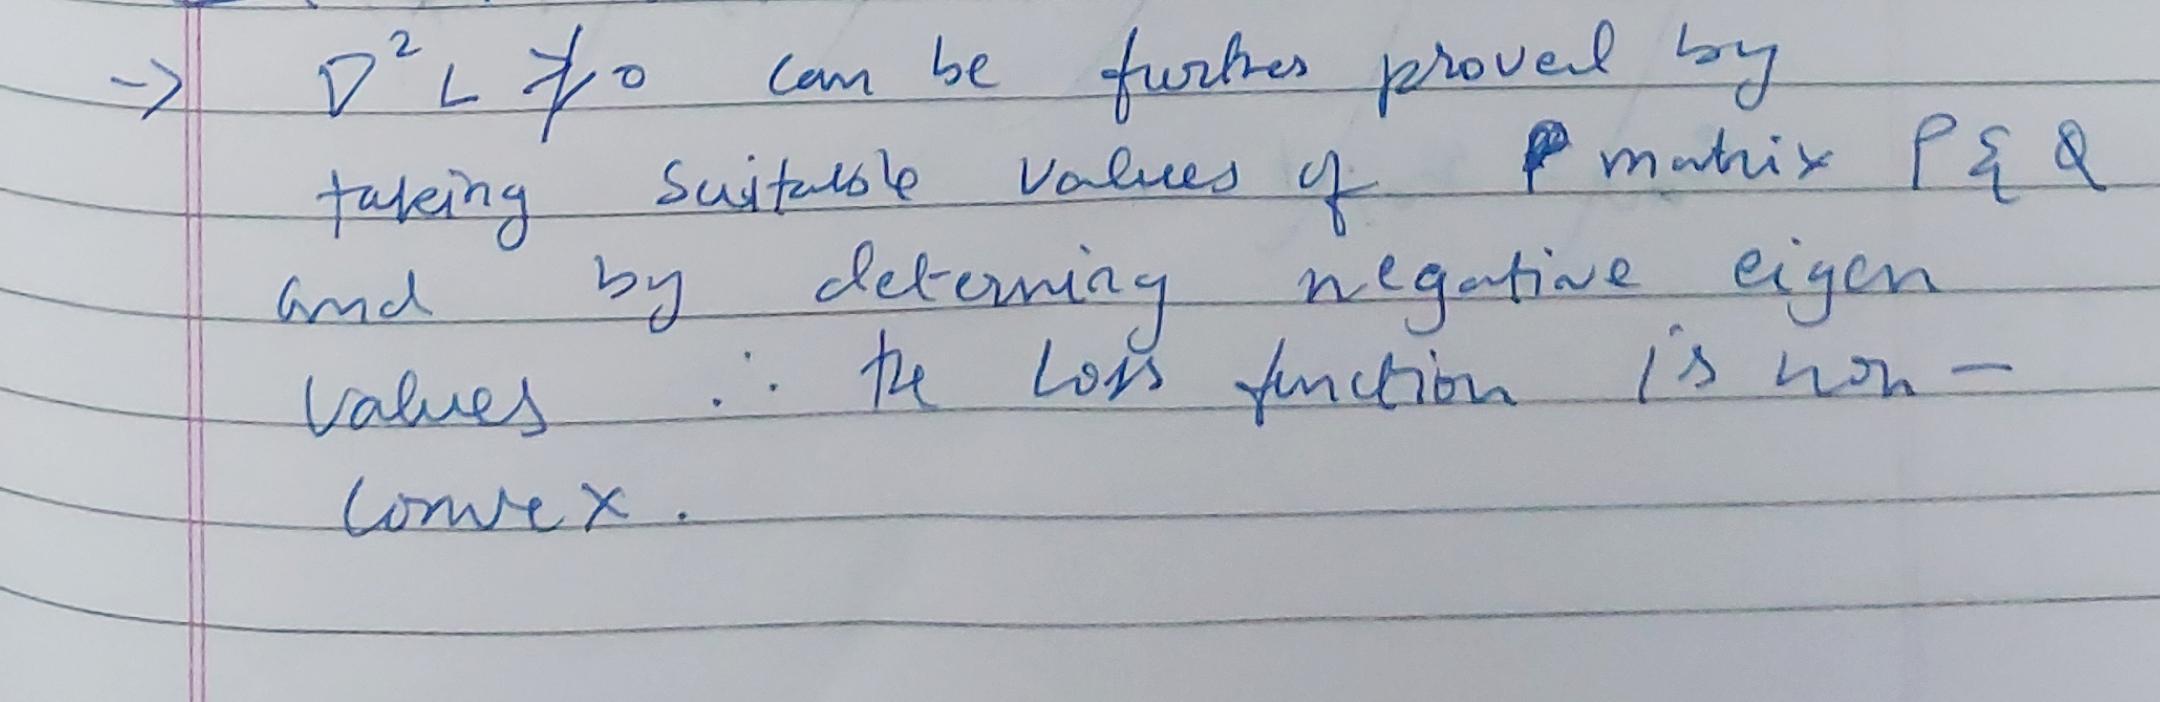 → ∇²L ≱ 0 can be further proved by
taking suitable values of matrix P & Q
and by determing negative eigen
values ∴ the Loss function is non-
convex.